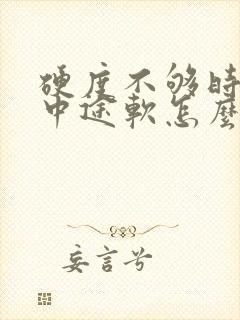 硬度不够时
中途軟怎麼
妄言兮